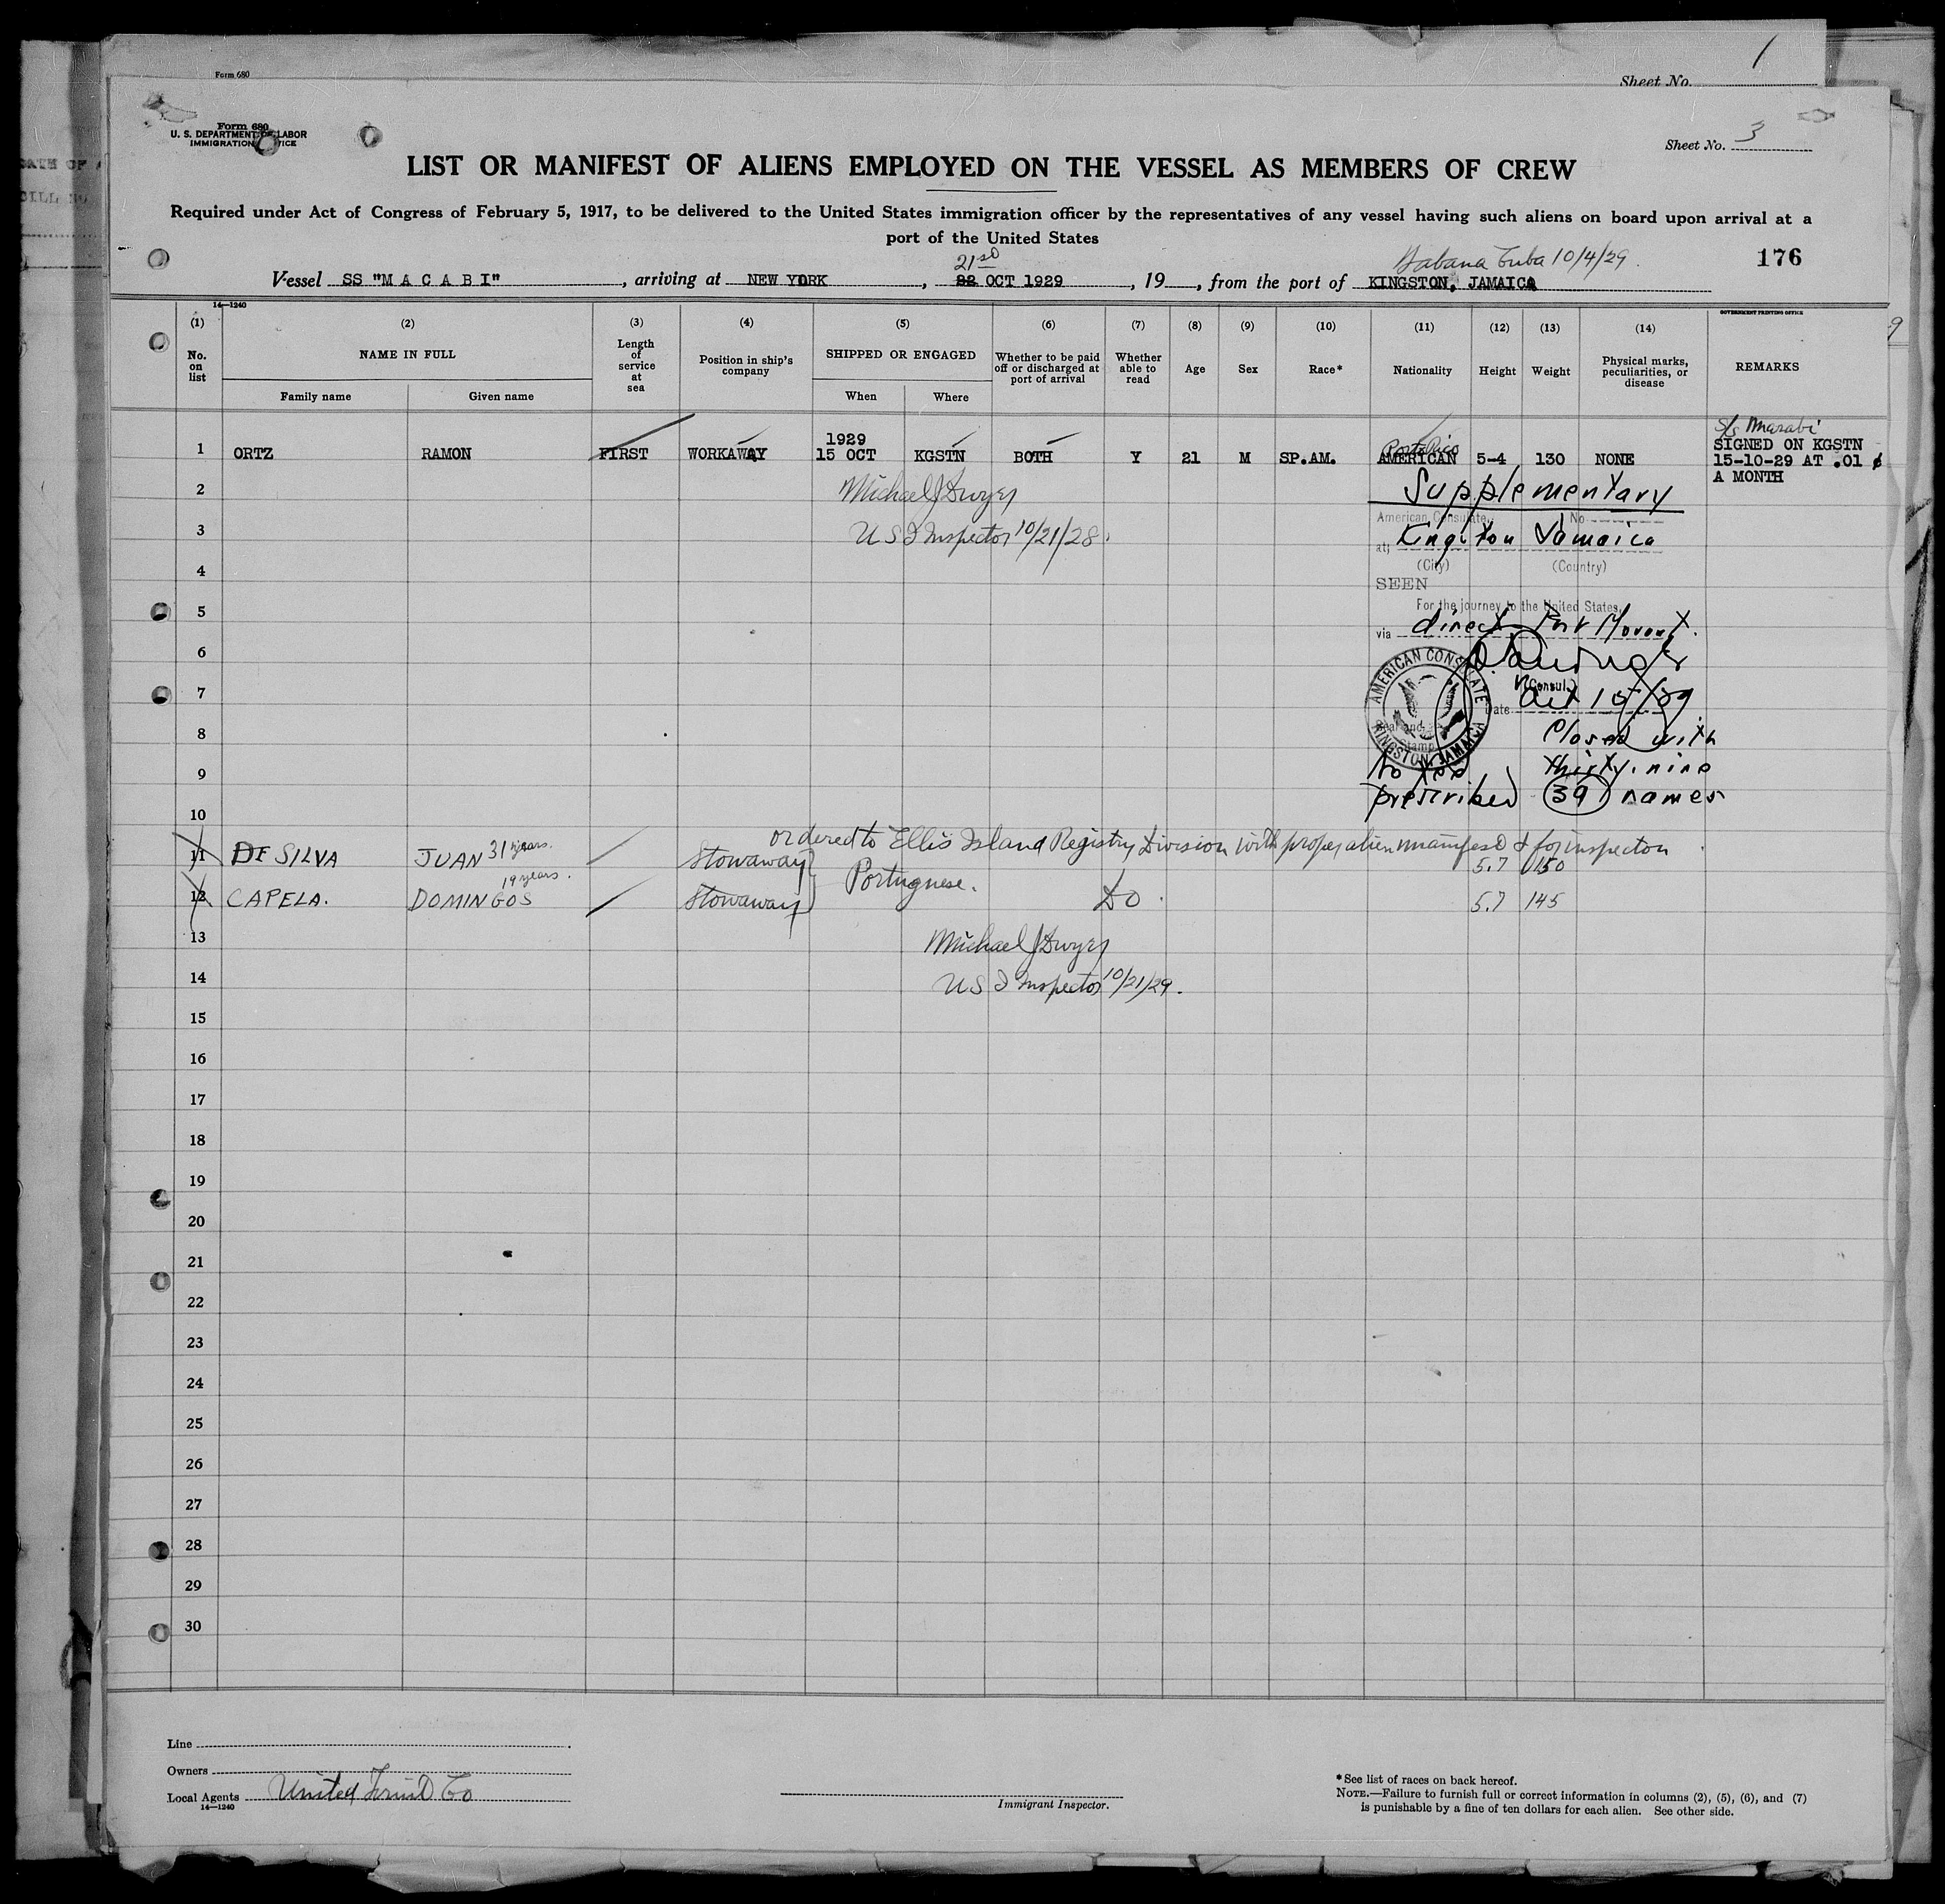 Form 680
1
Sheet No.
Form 680
U. S. DEPARTMENT OF LABOR
IMMIGRATION SERVICE
Sheet No. 3
LIST OR MANIFEST OF ALIENS EMPLOYED ON THE VESSEL AS MEMBERS OF CREW
Required under Act of Congress of February 5, 1917, to be delivered to the United States immigration officer by the representatives of any vessel having such aliens on board upon arrival at a
port of the United States
176
21st
Habana Cuba 10/4/29.
Vessel SS "MACABI", arriving at NEW YORK, 22 OCT 1929, 19, from the port of KINGSTON, JAMAICA
14—1240
GOVERNMENT PRINTING OFFICE
(1) (2) (3) (4) (5) (6) (7) (8) (9) (10) (11) (12) (13) (14)
No. on list
NAME IN FULL
Family name
Given name
Length of service at sea
Position in ship's company
SHIPPED OR ENGAGED
When
Where
Whether to be paid off or discharged at port of arrival
Whether able to read
Age
Sex
Race*
Nationality
Height
Weight
Physical marks, peculiarities, or disease
REMARKS
1 ORTZ RAMON FIRST WORKAWAY 1929 15 OCT KGSTN BOTH Y 21 M SP.AM. Porto Rico AMERICAN 5-4 130 NONE
S/S Macabi
SIGNED ON KGSTN
15-10-29 AT .01 ¢
A MONTH
2 Michael J Dwyer
3 U S I Inspector 10/21/28.
Supplementary
American Consulate, No
at, Kingston Jamaica
(City) (Country)
4
SEEN
5
For the journey to the United States,
via direct Port Morant.
6
7
(Consul.)
Date Oct 15/29
AMERICAN CONSULATE
KINGSTON, JAMAICA
8
Closed with
9
No fee thirty-nine
prescribed (39) names
10
ordered to Ellis Island Registry Division with proper alien manifest & for inspection
11 DE SILVA JUAN 31 years. Stowaway 5.7 150
Portuguese.
12 CAPELA. DOMINGOS 19 years. Stowaway Do. 5.7 145
13 Michael J Dwyer
14 U S I Inspector 10/21/29.
15
16
17
18
19
20
21
22
23
24
25
26
27
28
29
30
Line
Owners
Local Agents United Fruit Co
14—1240
Immigrant Inspector.
*See list of races on back hereof.
NOTE.—Failure to furnish full or correct information in columns (2), (5), (6), and (7)
is punishable by a fine of ten dollars for each alien. See other side.